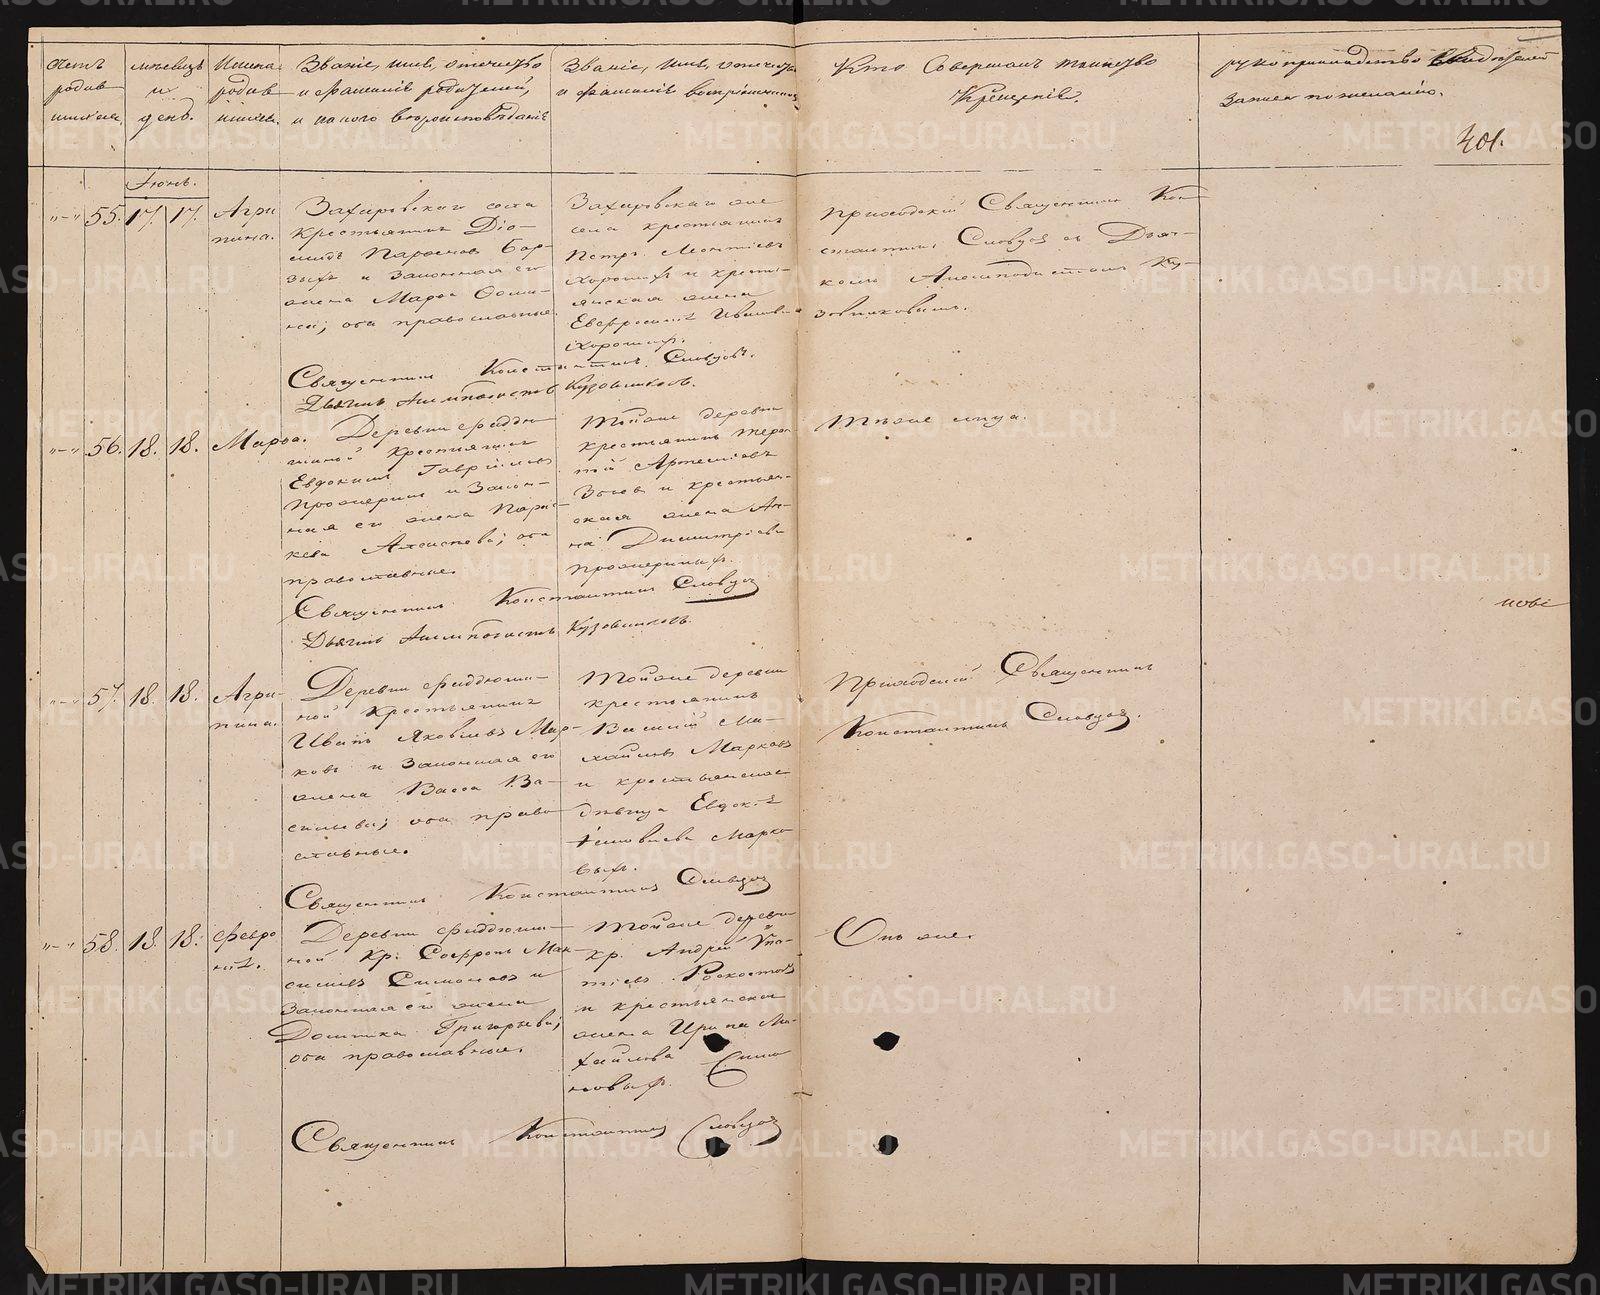 Счетъ родив
шихся.
мѣсяцъ
и
день.
Имена
родив
шихся.
Званіе, имя, отечество
и фамилія родителей,
и какого вѣроисповѣданія
Званіе, имя, отечество
и фамилія воспріемниковъ
Кто совершалъ таинство
Крещенія.
рукоприкладство свидѣтелей
записи по желанію.
401.
Іюнь.
55. 17. 17.
Агри
пина.
Захаровскаго села
крестьянинъ Діо-
мидъ
и законная его
жена Марѳа
оба православные
Захаровскаго же
села крестьянинъ
Петръ Леонтіевъ
Хорошихъ и кресть-
янская жена
Евфросинія Иванова
Хорошихъ.
Приходскій Священникъ Кон
стантинъ Словцовъ съ Дьяч-
комъ Анемподистомъ Ку-
зовниковымъ.
Священникъ Константинъ Словцовъ.
Дьячекъ Анемподистъ Кузовниковъ.
56. 18. 18. Марѳа.
Деревни Фиддю
шиной крестьянинъ
Евдокимъ Гавріиловъ
Проскурякъ и закон-
ная его жена Парас-
кева Алексѣева; оба
православные.
Тойже деревни
крестьянинъ Терен
тій Артеміевъ
Зыевъ и крестьян-
ская жена Ан-
на Димитріева
Тѣже лица.
Священникъ Константинъ Словцовъ
Дьячекъ Анемподистъ Кузовниковъ.
57. 18. 18.
Агри-
пина.
Деревни Фиддюши-
ной крестьянинъ
Иванъ Яковлевъ Мар-
ковъ и законная его
жена Васса Ва-
сильева; оба право
славные.
Тойже деревни
крестьянинъ
Василій Ми-
хайловъ Марковъ
и крестьянская
дѣвица Евдокія
Яковлева Марко
выхъ.
Приходскій Священникъ
Константинъ Словцовъ.
Священникъ Константинъ Словцовъ
58. 18. 18.
Февро
нія.
Деревни Фиддюши-
ной кр. Софронъ Мак-
симовъ Симоновъ и
законная его жена
Домника Григорьева;
оба православные.
Тойже деревни
кр. Андрей Ипа-
тіевъ
и крестьянская
жена Ирина Ми-
хайлова Симо
новыхъ.
Онъ же.
Священникъ Константинъ Словцовъ
METRIKI.GASO-URAL.RU